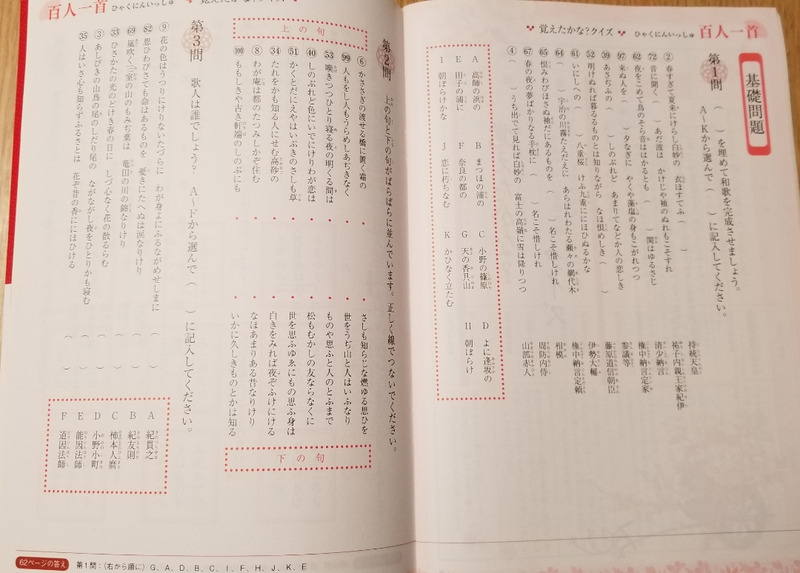 覚えたかな?クイズ ひゃくにんいっしゅ 百人一首
基礎問題
第1問 (　)を埋めて和歌を完成させましょう。
A〜Kから選んで(　)に記入してください。
② 春すぎて夏来にけらし白妙の 衣ほすてふ(　) 持統天皇
72 音に聞く(　)あだ波は かけじや袖のぬれもこそすれ 祐子内親王家紀伊
62 夜をこめて鳥のそら音ははかるとも (　)関はゆるさじ 清少納言
97 来ぬ人を(　)夕なぎに やくや藻塩の身もこがれつつ 権中納言定家
39 あさぢふの(　)しのぶれど あまりてなどか人の恋しき 参議等
52 明けぬれば暮るるものとは知りながら なほ恨めしき(　) 藤原道信朝臣
61 いにしへの(　)八重桜 けふ九重ににほひぬるかな 伊勢大輔
64 (　)宇治の川霧たえだえに あらはれわたる瀬々の網代木 権中納言定頼
65 恨みわびほさぬ袖だにあるものを (　)名こそ惜しけれ 相模
67 春の夜の夢ばかりなる手枕に (　)名こそ惜しけれ 周防内侍
④ (　)うち出でて見れば白妙の 富士の高嶺に雪は降りつつ 山部赤人
A 高師の浜の
B まつほの浦の
C 小野の篠原
D よに逢坂の
E 田子の浦に
F 奈良の都の
G 天の香具山
H 朝ぼらけ
I 朝ぼらけかな
J 恋に朽ちなむ
K かひなく立たむ
百人一首 ひゃくにんいっしゅ 覚えたかな?クイズ
第2問 上の句と下の句がばらばらに並んでいます。正しく線でつないでください。
上の句
⑥ かささぎの渡せる橋に置く霜の
99 人もをし人もうらめしあぢきなく
53 嘆きつつひとり寝る夜の明くる間は
40 しのぶれど色にいでにけりわが恋は
51 かくとだにえやはいぶきのさしも草
34 たれをかも知る人にせむ高砂の
⑧ わが庵は都のたつみしかぞ住む
100 ももしきや古き軒端のしのぶにも
さしも知らじな燃ゆる思ひを
世をうぢ山と人はいふなり
ものや思ふと人のとふまで
松もむかしの友ならなくに
世を思ふゆゑにもの思ふ身は
白きをみれば夜ぞふけにける
なほあまりある昔なりけり
いかに久しきものとかは知る
下の句
第3問 歌人は誰でしょう? A〜Fから選んで(　)に記入してください。
⑨ 花の色はうつりにけりないたづらに わが身よにふるながめせしまに (　)
82 思ひわびさても命はあるものを 憂きにたへぬは涙なりけり (　)
69 嵐吹く三室の山のもみぢ葉は 竜田の川の錦なりけり (　)
33 ひさかたの光のどけき春の日に しづ心なく花の散るらむ (　)
③ あしびきの山鳥の尾のしだり尾の ながながし夜をひとりかも寝む (　)
35 人はいさ心も知らずふるさとは 花ぞ昔の香ににほひける (　)
A 紀貫之
B 紀友則
C 柿本人麿
D 小野小町
E 能因法師
F 道因法師
62ページの答え 第1問:(右から順に)G、A、D、B、C、I、F、H、J、K、E